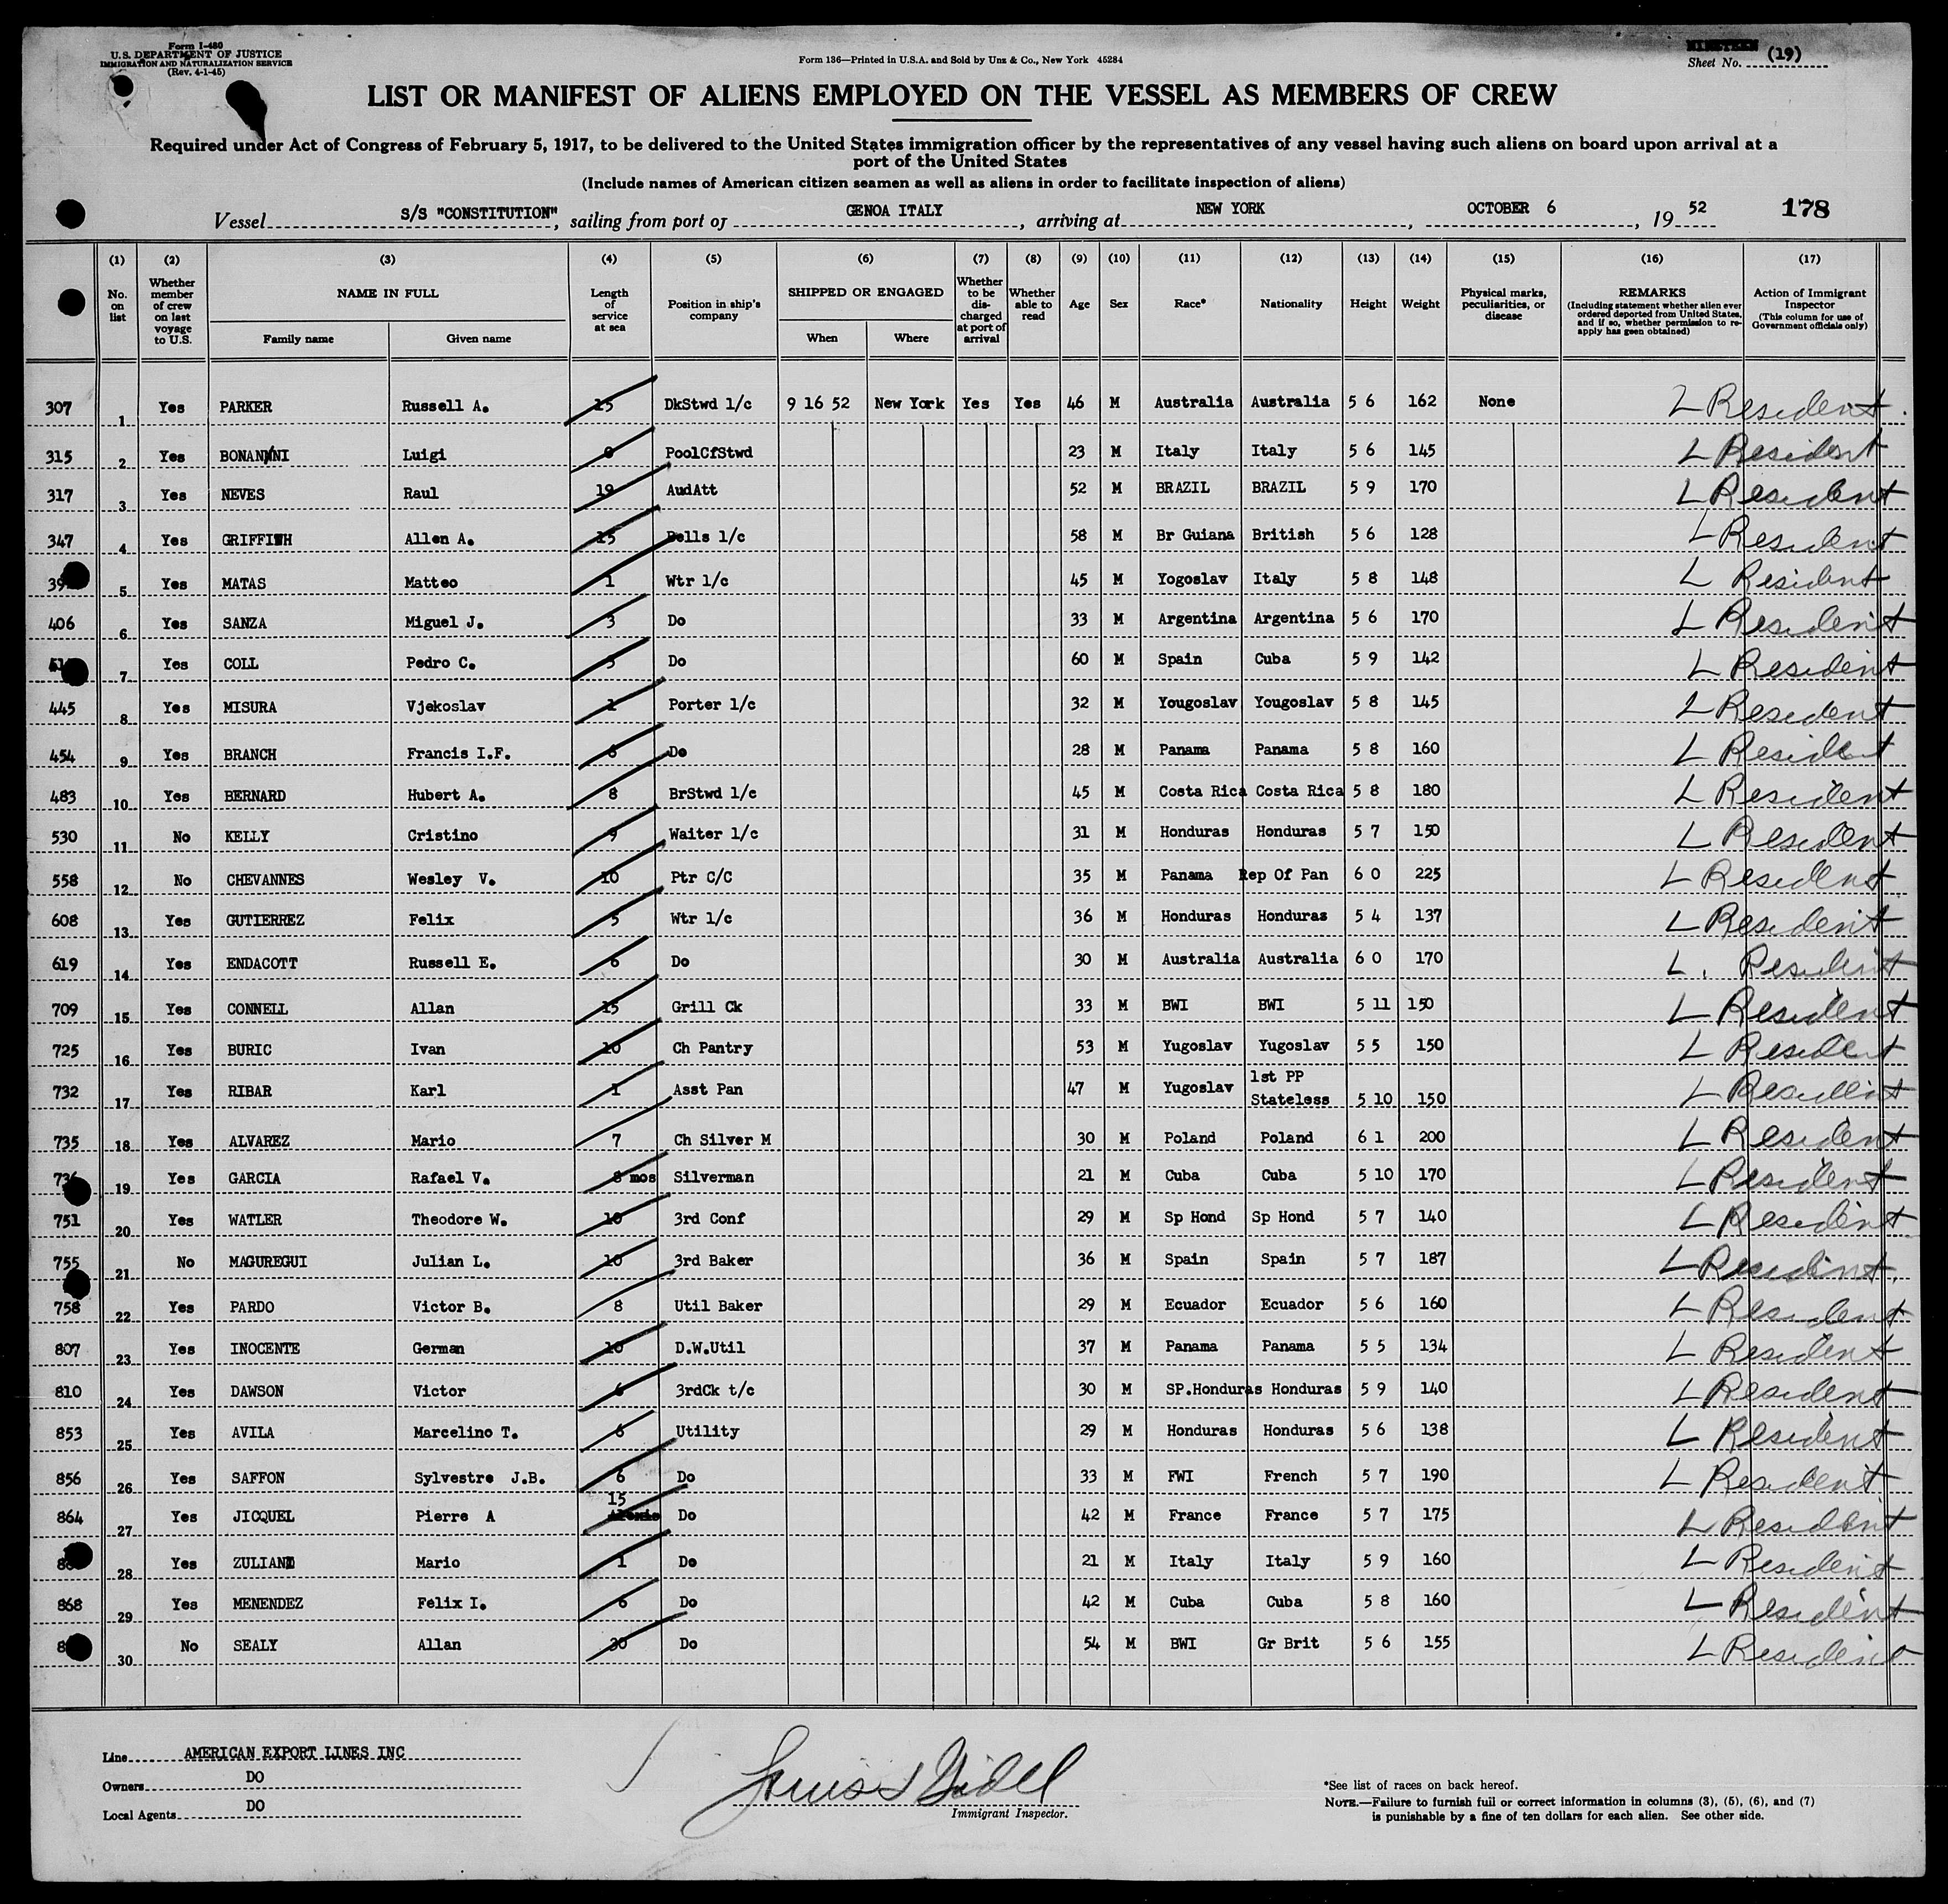 Form I-480
U.S. DEPARTMENT OF JUSTICE
IMMIGRATION AND NATURALIZATION SERVICE
(Rev. 4-1-45)
Form 136—Printed in U.S.A. and Sold by Unz & Co., New York 45284
NINETEEN (19)
Sheet No.
LIST OR MANIFEST OF ALIENS EMPLOYED ON THE VESSEL AS MEMBERS OF CREW
Required under Act of Congress of February 5, 1917, to be delivered to the United States immigration officer by the representatives of any vessel having such aliens on board upon arrival at a
port of the United States
(Include names of American citizen seamen as well as aliens in order to facilitate inspection of aliens)
Vessel S/S "CONSTITUTION", sailing from port of GENOA ITALY, arriving at NEW YORK, OCTOBER 6, 19 52 178
(1) (2) (3) (4) (5) (6) (7) (8) (9) (10) (11) (12) (13) (14) (15) (16) (17)
No. on list
Whether member of crew on last voyage to U.S.
NAME IN FULL
Family name
Given name
Length of service at sea
Position in ship's company
SHIPPED OR ENGAGED
When
Where
Whether to be discharged at port of arrival
Whether able to read
Age
Sex
Race*
Nationality
Height
Weight
Physical marks, peculiarities, or disease
REMARKS
(Including statement whether alien ever ordered deported from United States, and if so, whether permission to re-apply has been obtained)
Action of Immigrant Inspector
(This column for use of Government officials only)
307 1 Yes PARKER Russell A. 15 DkStwd 1/c 9 16 52 New York Yes Yes 46 M Australia Australia 5 6 162 None L Resident.
315 2 Yes BONANNI Luigi PoolCfStwd 23 M Italy Italy 5 6 145 L Resident
317 3 Yes NEVES Raul 19 AudAtt 52 M BRAZIL BRAZIL 5 9 170 L Resident
347 4 Yes GRIFFITH Allen A. 15 Bells 1/c 58 M Br Guiana British 5 6 128 L Resident
5 Yes MATAS Matteo 1 Wtr 1/c 45 M Yogoslav Italy 5 8 148 L Resident
406 6 Yes SANZA Miguel J. 3 Do 33 M Argentina Argentina 5 6 170 L Resident
7 Yes COLL Pedro C. 5 Do 60 M Spain Cuba 5 9 142 L Resident
445 8 Yes MISURA Vjekoslav 1 Porter 1/c 32 M Yougoslav Yougoslav 5 8 145 L Resident
454 9 Yes BRANCH Francis I.F. Do 28 M Panama Panama 5 8 160 L Resident
483 10 Yes BERNARD Hubert A. 8 BrStwd 1/c 45 M Costa Rica Costa Rica 5 8 180 L Resident
530 11 No KELLY Cristino 9 Waiter 1/c 31 M Honduras Honduras 5 7 150 L Resident
558 12 No CHEVANNES Wesley V. 10 Ptr C/C 35 M Panama Rep Of Pan 6 0 225 L Resident
608 13 Yes GUTIERREZ Felix 5 Wtr 1/c 36 M Honduras Honduras 5 4 137 L Resident
619 14 Yes ENDACOTT Russell E. 6 Do 30 M Australia Australia 6 0 170 L. Resident
709 15 Yes CONNELL Allan 15 Grill Ck 33 M BWI BWI 5 11 150 L Resident
725 16 Yes BURIC Ivan 10 Ch Pantry 53 M Yugoslav Yugoslav 5 5 150 L Resident
732 17 Yes RIBAR Karl 1 Asst Pan 47 M Yugoslav 1st PP Stateless 5 10 150 L Resident
735 18 Yes ALVAREZ Mario 7 Ch Silver M 30 M Poland Poland 6 1 200 L Resident
19 Yes GARCIA Rafael V. 8 mos Silverman 21 M Cuba Cuba 5 10 170 L Resident
751 20 Yes WATLER Theodore W. 10 3rd Conf 29 M Sp Hond Sp Hond 5 7 140 L Resident
755 21 No MAGUREGUI Julian L. 10 3rd Baker 36 M Spain Spain 5 7 187 L Resident.
758 22 Yes PARDO Victor B. 8 Util Baker 29 M Ecuador Ecuador 5 6 160 L Resident
807 23 Yes INOCENTE German 10 D.W.Util 37 M Panama Panama 5 5 134 L Resident
810 24 Yes DAWSON Victor 6 3rdCk t/c 30 M SP.Honduras Honduras 5 9 140 L Resident
853 25 Yes AVILA Marcelino T. 6 Utility 29 M Honduras Honduras 5 6 138 L Resident
856 26 Yes SAFFON Sylvestre J.B. 6 Do 33 M FWI French 5 7 190 L Resident
864 27 Yes JICQUEL Pierre A 15 Do 42 M France France 5 7 175 L Resident
28 Yes ZULIANI Mario 1 Do 21 M Italy Italy 5 9 160 L Resident
868 29 Yes MENENDEZ Felix I. 6 Do 42 M Cuba Cuba 5 8 160 L Resident
30 No SEALY Allan 30 Do 54 M BWI Gr Brit 5 6 155 L Resident
Line AMERICAN EXPORT LINES INC
Owners DO
Local Agents DO
Immigrant Inspector.
*See list of races on back hereof.
NOTE.—Failure to furnish full or correct information in columns (3), (5), (6), and (7)
is punishable by a fine of ten dollars for each alien. See other side.